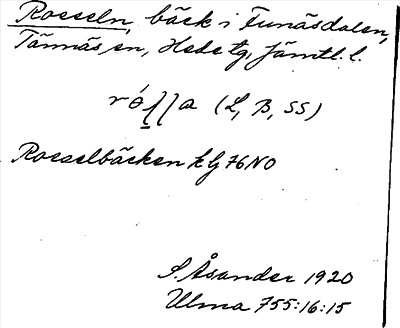 Rosseln, bäck i Funäsdalen,
Tännäs sn, Hede tg, Jämtl. l.
(L, B, SS)
Rosselbäcken kbl 76 NO
S. Åsander 1920
Ulma 755:16:15